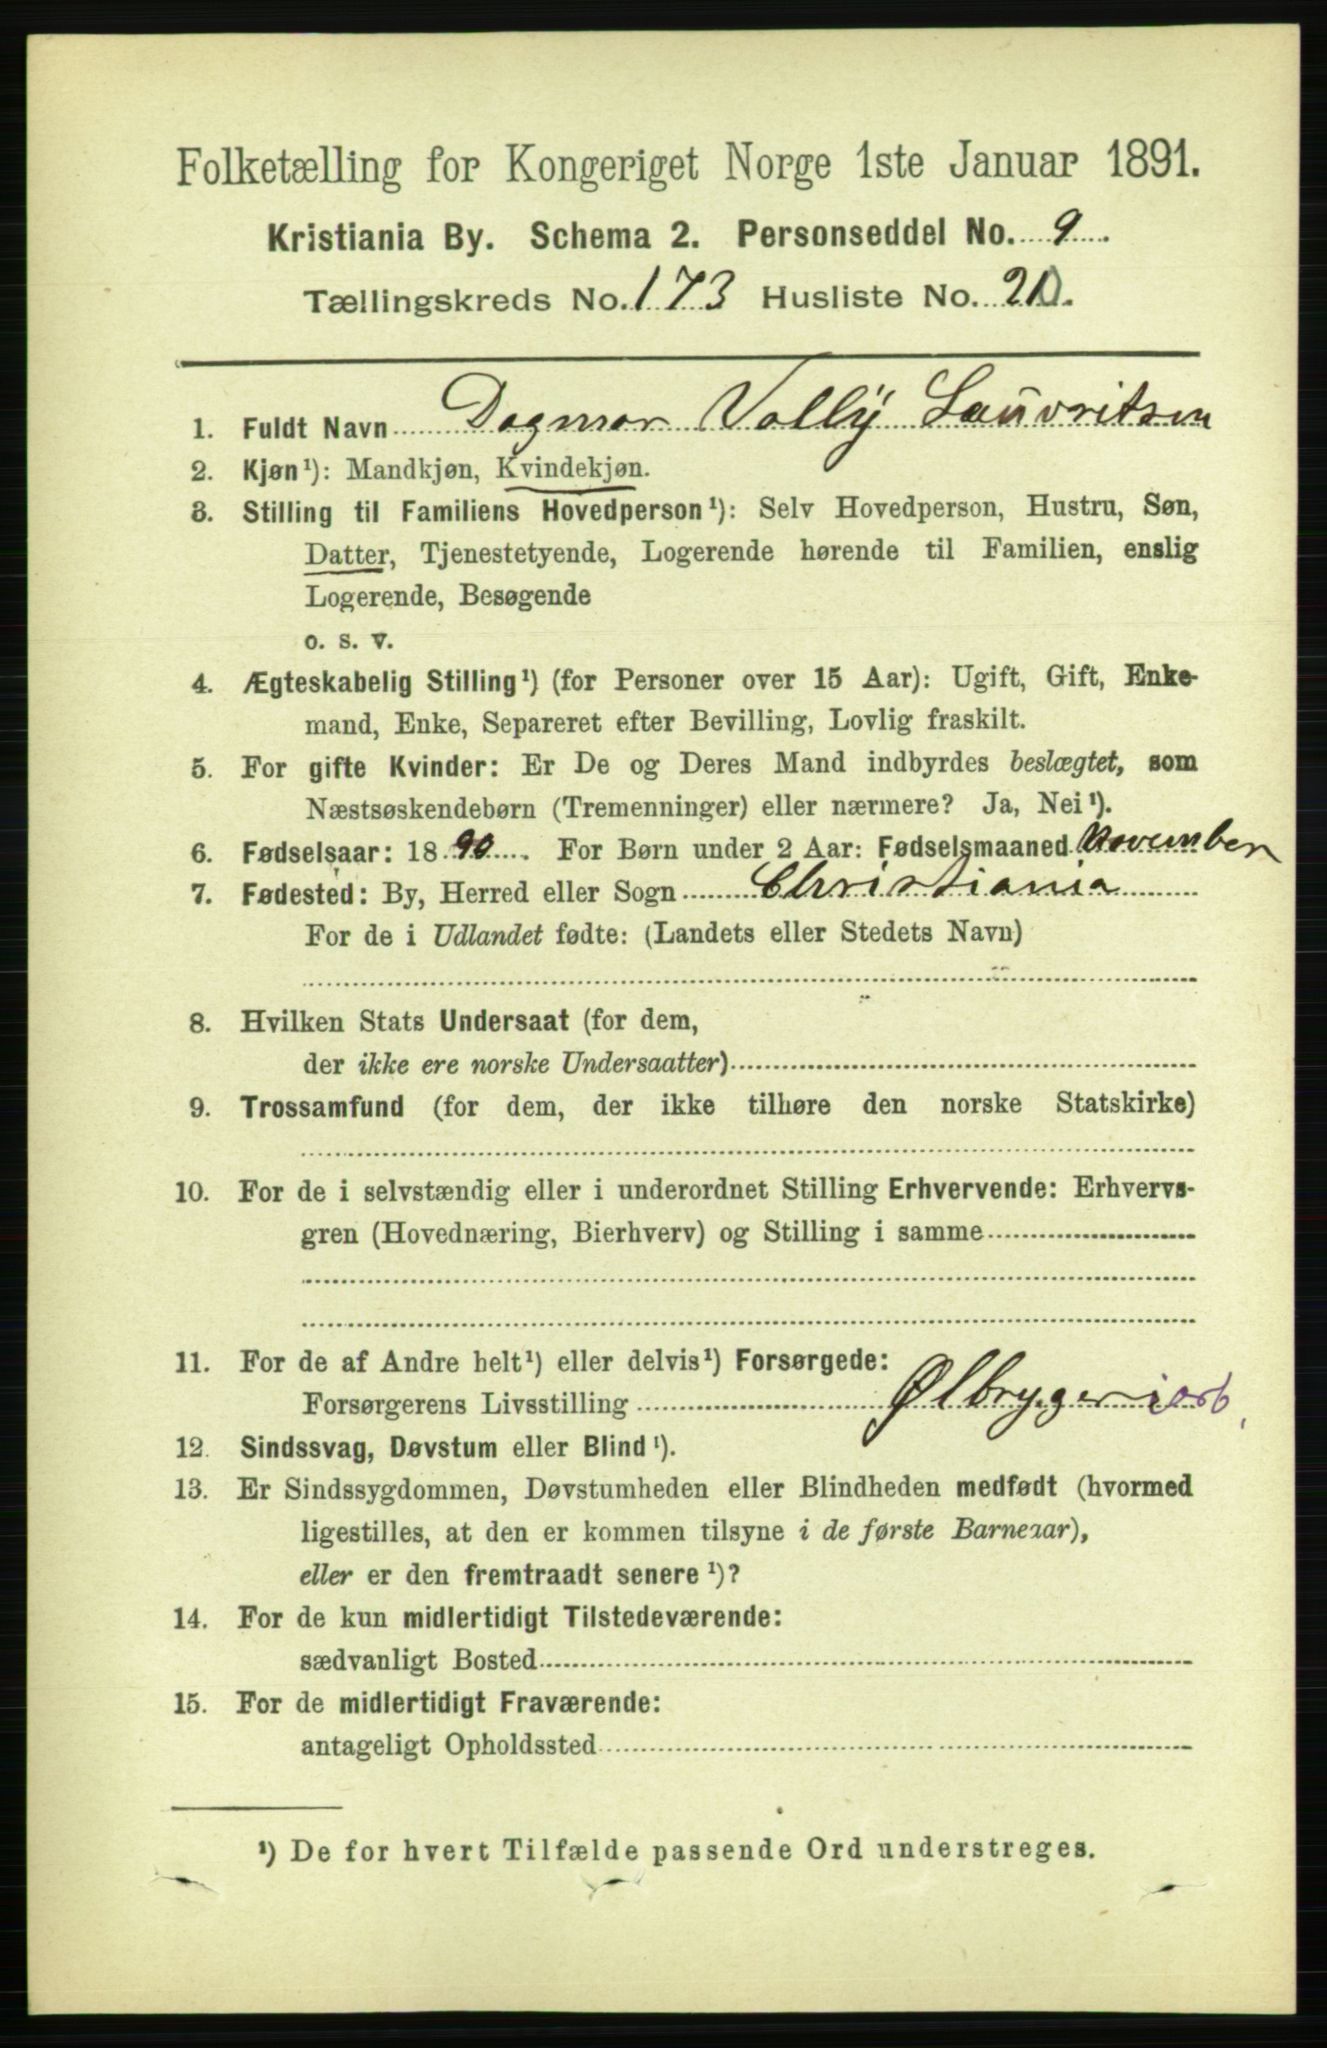 Folketælling for Kongeriget Norge 1ste Januar 1891.
Kristiania By. Schema 2. Personseddel No. 9
Tællingskreds No. 173 Husliste No. 20.
1. Fuldt Navn Dagmar Vally Lauvritsen
2. Kjøn¹): Mandkjøn, Kvindekjøn.
3. Stilling til Familiens Hovedperson¹): Selv Hovedperson, Hustru, Søn,
Datter, Tjenestetyende, Logerende hørende til Familien, enslig
Logerende, Besøgende
o. s. v.
4. Ægteskabelig Stilling¹) (for Personer over 15 Aar): Ugift, Gift, Enke-
mand, Enke, Separeret efter Bevilling, Lovlig fraskilt.
5. For gifte Kvinder: Er De og Deres Mand indbyrdes beslægtet, som
Næstsøskendebørn (Tremenninger) eller nærmere? Ja, Nei¹).
6. Fødselsaar: 1890. For Børn under 2 Aar: Fødselsmaaned November
7. Fødested: By, Herred eller Sogn Christiania
For de i Udlandet fødte: (Landets eller Stedets Navn)
8. Hvilken Stats Undersaat (for dem,
der ikke ere norske Undersaatter)
9. Trossamfund (for dem, der ikke tilhøre den norske Statskirke)
10. For de i selvstændig eller i underordnet Stilling Erhvervende: Erhvervs-
gren (Hovednæring, Bierhverv) og Stilling i samme
11. For de af Andre helt¹) eller delvis¹) Forsørgede:
Forsørgerens Livsstilling Ølbryggeriarb.
12. Sindssvag, Døvstum eller Blind¹).
13. Er Sindssygdommen, Døvstumheden eller Blindheden medfødt (hvormed
ligestilles, at den er kommen tilsyne i de første Barneaar),
eller er den fremtraadt senere¹)?
14. For de kun midlertidigt Tilstedeværende:
sædvanligt Bosted
15. For de midlertidigt Fraværende:
antageligt Opholdssted
¹) De for hvert Tilfælde passende Ord understreges.